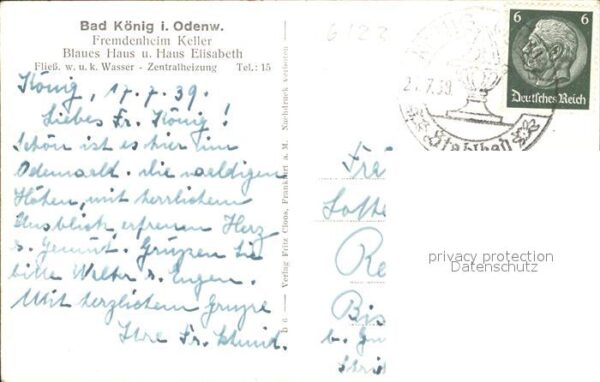 Bad König i. Odenw.
Fremdenheim Keller
Blaues Haus u. Haus Elisabeth
Fließ. w. u. k. Wasser - Zentralheizung Tel.: 15
König, 17.7.39.
Liebes Frl. König!
Schön ist es hier im
Odenwald. Die waldigen
Höhen, mit herrlichem
Ausblick, erfreuen Herz
u. Gemüt. Grüßen Sie
bitte Walter u. Eugen.
Mit herzlichem Grusse
Ihre Fr. Schmid.
Verlag Fritz Cloos, Frankfurt a. M. Nachdruck verboten
6123
7.39
6 6
Deutsches Reich
Frä
Lotte
Re
Bis
b.
privacy protection
Datenschutz